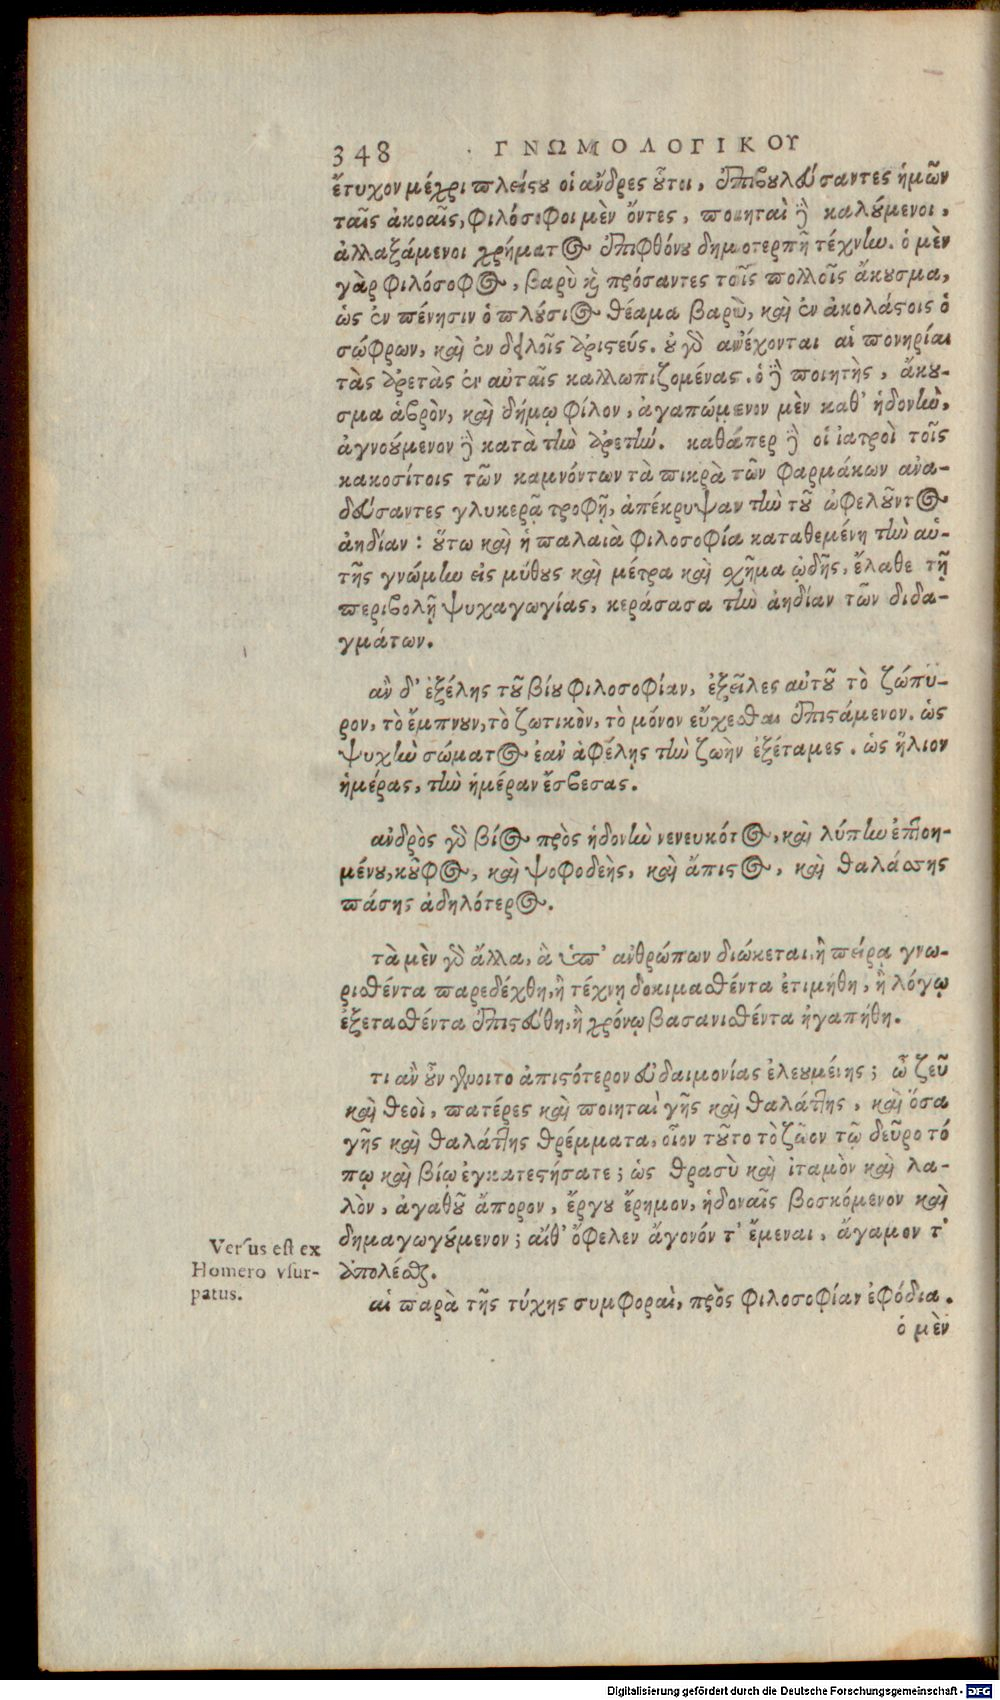 348 ΓΝΩΜΟΛΟΓΙΚΟΥ
ἔτυχον μέχρι πλείςου οἱ ἄνδρες οὗτοι, ἐπιβουλεύσαντες ἡμῶν
ταῖς ἀκοαῖς, φιλόσοφοι μὲν ὄντες, ποιηταὶ δὲ καλούμενοι,
ἀλλαξάμενοι χρήματος ἐπιφθόνου δημοτερπῆ τέχνην. ὁ μὲν
γὰρ φιλόσοφος, βαρὺ καὶ πρόσαντες τοῖς πολλοῖς ἄκουσμα,
ὡς ἐν πένησιν ὁ πλούσιος θέαμα βαρὺ, καὶ ἐν ἀκολάςοις ὁ
σώφρων, καὶ ἐν δειλοῖς ἀριςεύς. οὐ γὰρ ἀνέχονται αἱ πονηρίαι
τὰς ἀρετὰς ἐν αὐταῖς καλλωπιζομένας. ὁ δὲ ποιητὴς, ἄκου-
σμα ἁβρὸν, καὶ δήμῳ φίλον, ἀγαπώμενον μὲν καθ' ἡδονὴν,
ἀγνοούμενον δὲ κατὰ τὴν ἀρετήν. καθάπερ δὲ οἱ ἰατροὶ τοῖς
κακοσίτοις τῶν καμνόντων τὰ πικρὰ τῶν φαρμάκων ἀνα-
δεύσαντες γλυκερᾷ τροφῇ, ἀπέκρυψαν τὴν τοῦ ὠφελοῦντος
ἀηδίαν: οὕτω καὶ ἡ παλαιὰ φιλοσοφία καταθεμένη τὴν αὑ-
τῆς γνώμην εἰς μύθους καὶ μέτρα καὶ σχῆμα ᾠδῆς, ἔλαθε τῇ
περιβολῇ ψυχαγωγίας, κεράσασα τὴν ἀηδίαν τῶν διδα-
γμάτων.
ἂν δ' ἐξέλης τοῦ βίου φιλοσοφίαν, ἐξεῖλες αὐτοῦ τὸ ζώπυ-
ρον, τὸ ἔμπνουν, τὸ ζωτικὸν, τὸ μόνον εὔχεσθαι ἐπιςάμενον. ὡς
ψυχὴν σώματος ἐὰν ἀφέλῃς τὴν ζωὴν ἐξέταμες. ὡς ἥλιον
ἡμέρας, τὴν ἡμέραν ἔσβεσας.
ἀνδρὸς γὰρ βίος πρὸς ἡδονὴν νενευκότος, καὶ λύπην ἐπτοη-
μένου, κοῦφος, καὶ ψοφοδεὴς, καὶ ἄπιςος, καὶ θαλάσσης
πάσης ἀδηλότερος.
τὰ μὲν γὰρ ἄλλα, ἃ ὑπ' ἀνθρώπων διώκεται, ἢ πείρα γνω-
ρισθέντα παρεδέχθη, ἢ τέχνῃ δοκιμασθέντα ἐτιμήθη, ἢ λόγῳ
ἐξετασθέντα ἐπιςεύθη, ἢ χρόνῳ βασανισθέντα ἠγαπήθη.
τι ἂν οὖν γένοιτο ἀπιςότερον εὐδαιμονίας ἐλεουμένης; ὦ ζεῦ
καὶ θεοὶ, πατέρες καὶ ποιηταὶ γῆς καὶ θαλάττης, καὶ ὅσα
γῆς καὶ θαλάττης θρέμματα, οἷον τοῦτο τὸ ζῶον τῷ δεῦρο τό
πῳ καὶ βίῳ ἐγκατεςήσατε; ὡς θρασὺ καὶ ἰταμὸν καὶ λα-
λὸν, ἀγαθοῦ ἄπορον, ἔργου ἔρημον, ἡδοναῖς βοσκόμενον καὶ
δημαγωγούμενον; αἴθ' ὄφελεν ἄγονόν τ' ἔμεναι, ἄγαμον τ'
ἀπολέσθαι.
Versus est ex
Homero vsur-
patus.
αἱ παρὰ τῆς τύχης συμφοραὶ, πρὸς φιλοσοφίαν ἐφόδια.
ὁ μὲν
Digitalisierung gefördert durch die Deutsche Forschungsgemeinschaft - DFG